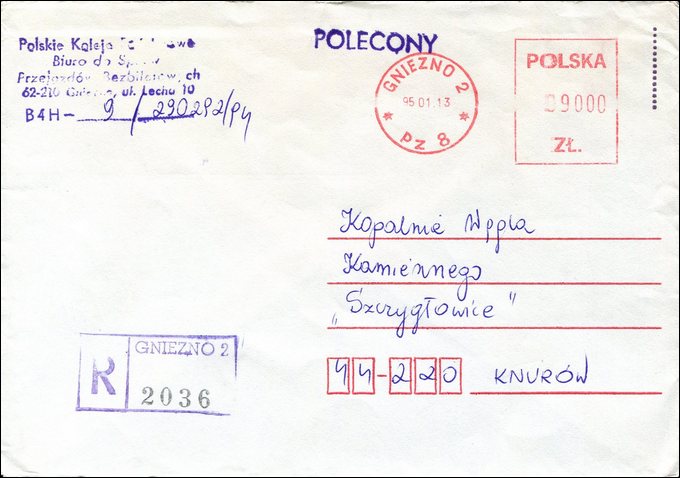 Polskie Koleje
Biuro do Spraw
Przejazdów Bezbiletowych
62-210 Gniezno, ul. Lecha 10
B4H- 9 / 290292/94
POLECONY
GNIEZNO 2
95 01.13
* pz 8 *
POLSKA
09000
ZŁ.
Kopalnia Węgla
Kamiennego
„Szczygłowice"
44-220 KNURÓW
R
GNIEZNO 2
2036